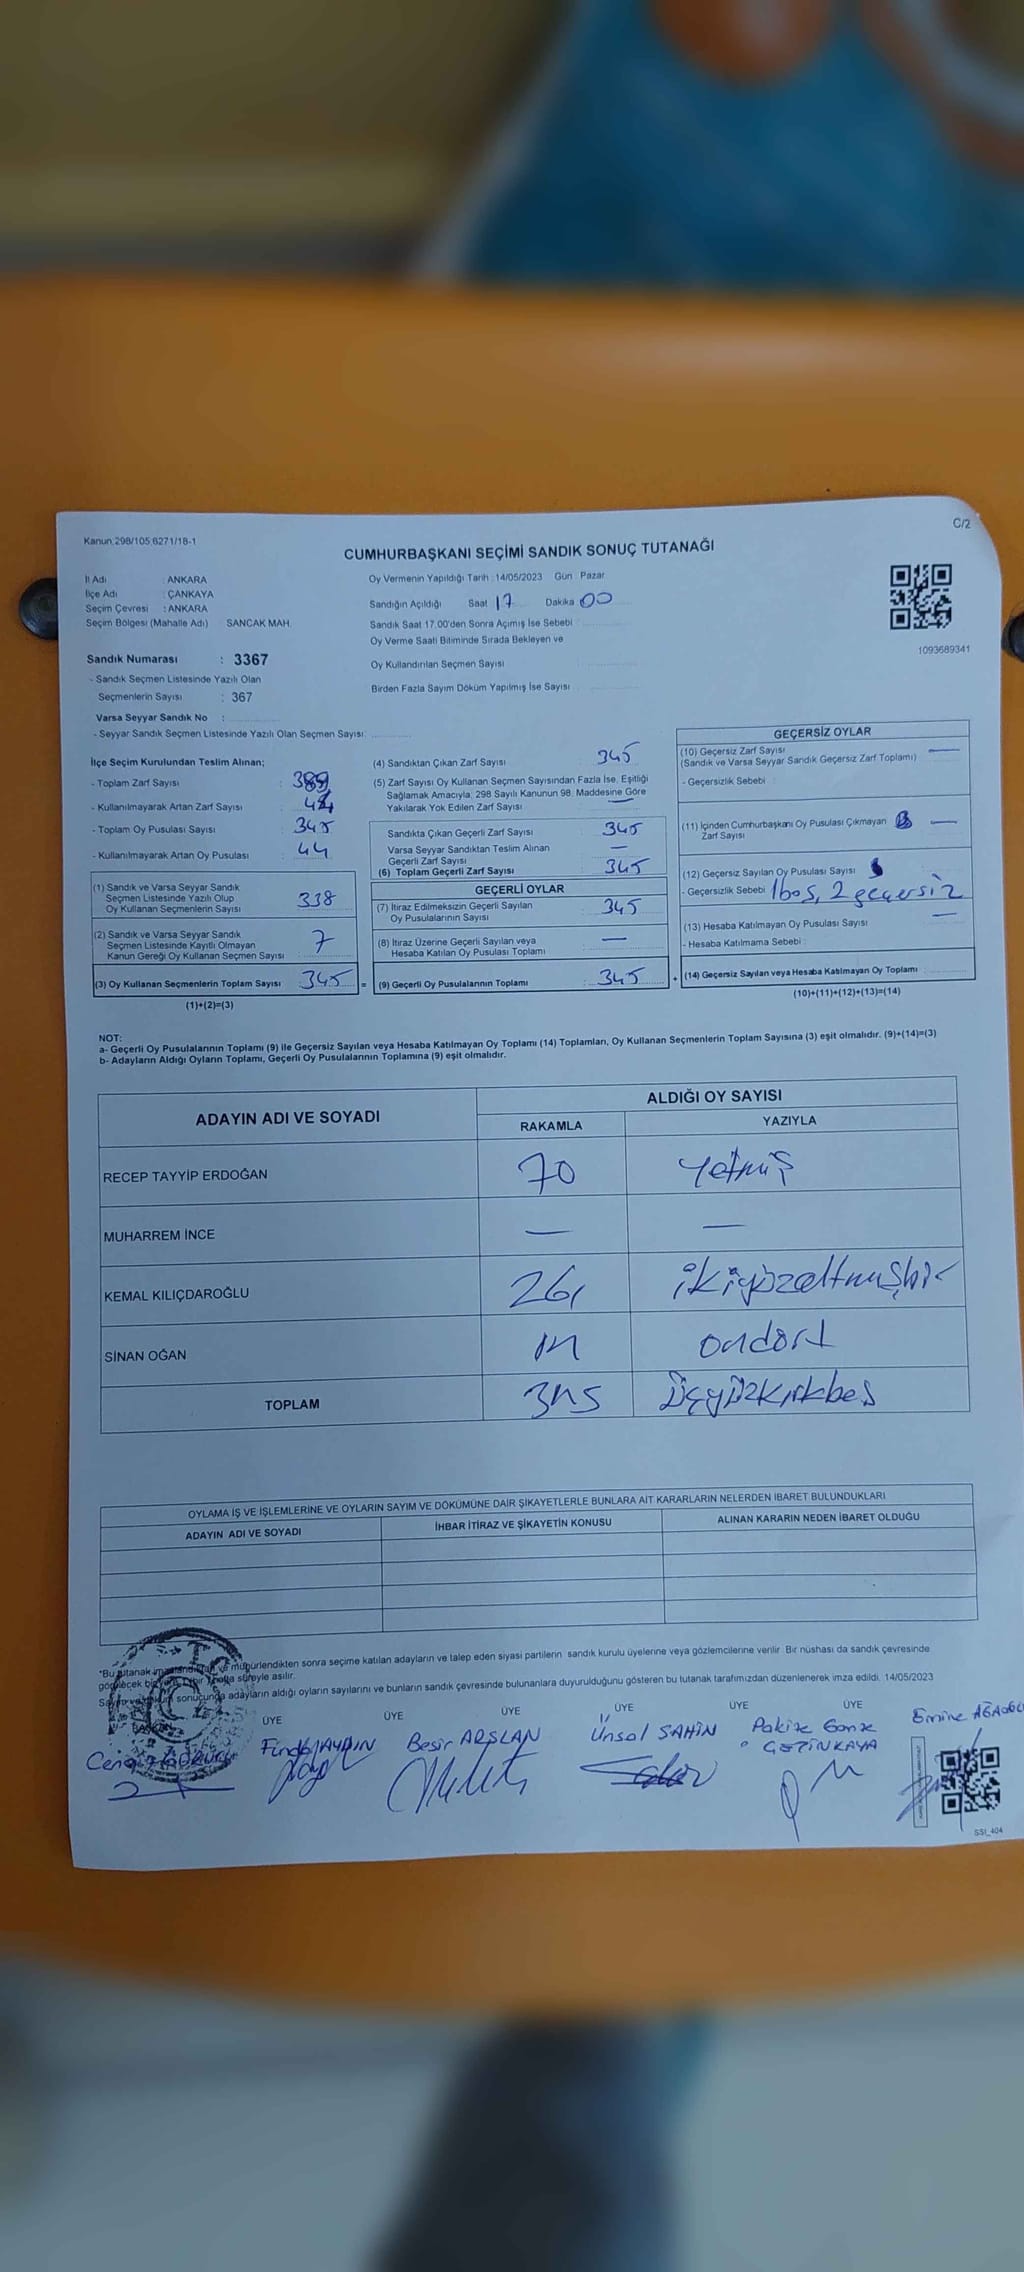 Kanun.298/105,6271/18-1
C/2
CUMHURBAŞKANI SEÇİMİ SANDIK SONUÇ TUTANAĞI
İl Adı : ANKARA
İlçe Adı : ÇANKAYA
Seçim Çevresi : ANKARA
Seçim Bölgesi (Mahalle Adı) SANCAK MAH.
Oy Vermenin Yapıldığı Tarih : 14/05/2023 Gün : Pazar
Sandığın Açıldığı Saat 17 Dakika 00
Sandık Saat 17.00'den Sonra Açımış İse Sebebi :
Oy Verme Saati Bitiminde Sırada Bekleyen ve
Oy Kullandırılan Seçmen Sayısı
Birden Fazla Sayım Döküm Yapılmış İse Sayısı
1093689341
Sandık Numarası : 3367
- Sandık Seçmen Listesinde Yazılı Olan
Seçmenlerin Sayısı : 367
Varsa Seyyar Sandık No :
- Seyyar Sandık Seçmen Listesinde Yazılı Olan Seçmen Sayısı:
İlçe Seçim Kurulundan Teslim Alınan;
- Toplam Zarf Sayısı : 389
- Kullanılmayarak Artan Zarf Sayısı :
- Toplam Oy Pusulası Sayısı : 345
- Kullanılmayarak Artan Oy Pusulası : 44
(1) Sandık ve Varsa Seyyar Sandık
Seçmen Listesinde Yazılı Olup
Oy Kullanan Seçmenlerin Sayısı 338
(2) Sandık ve Varsa Seyyar Sandık
Seçmen Listesinde Kayıtlı Olmayan
Kanun Gereği Oy Kullanan Seçmen Sayısı : 7
(3) Oy Kullanan Seçmenlerin Toplam Sayısı : 345 =
(1)+(2)=(3)
(4) Sandıktan Çıkan Zarf Sayısı : 345
(5) Zarf Sayısı Oy Kullanan Seçmen Sayısından Fazla İse, Eşitliği
Sağlamak Amacıyla; 298 Sayılı Kanunun 98. Maddesine Göre
Yakılarak Yok Edilen Zarf Sayısı : —
Sandıkta Çıkan Geçerli Zarf Sayısı : 345
Varsa Seyyar Sandıktan Teslim Alınan
Geçerli Zarf Sayısı : —
(6) Toplam Geçerli Zarf Sayısı : 345
GEÇERLİ OYLAR
(7) İtiraz Edilmeksizin Geçerli Sayılan
Oy Pusulalarının Sayısı : 345
(8) İtiraz Üzerine Geçerli Sayılan veya
Hesaba Katılan Oy Pusulası Toplamı : —
(9) Geçerli Oy Pusulalarının Toplamı : 345 +
GEÇERSİZ OYLAR
(10) Geçersiz Zarf Sayısı
(Sandık ve Varsa Seyyar Sandık Geçersiz Zarf Toplamı) —
- Geçersizlik Sebebi :
(11) İçinden Cumhurbaşkanı Oy Pusulası Çıkmayan —
Zarf Sayısı
(12) Geçersiz Sayılan Oy Pusulası Sayısı :
- Geçersizlik Sebebi : 1 boş, 2 geçersiz
(13) Hesaba Katılmayan Oy Pusulası Sayısı : —
- Hesaba Katılmama Sebebi :
(14) Geçersiz Sayılan veya Hesaba Katılmayan Oy Toplamı
(10)+(11)+(12)+(13)=(14)
NOT:
a- Geçerli Oy Pusulalarının Toplamı (9) ile Geçersiz Sayılan veya Hesaba Katılmayan Oy Toplamı (14) Toplamları, Oy Kullanan Seçmenlerin Toplam Sayısına (3) eşit olmalıdır. (9)+(14)=(3)
b- Adayların Aldığı Oyların Toplamı, Geçerli Oy Pusulalarının Toplamına (9) eşit olmalıdır.
ADAYIN ADI VE SOYADI
ALDIĞI OY SAYISI
RAKAMLA YAZIYLA
RECEP TAYYİP ERDOĞAN 70 Yetmiş
MUHARREM İNCE — —
KEMAL KILIÇDAROĞLU 261 ikiyüzaltmışbir
SİNAN OĞAN 14 ondört
TOPLAM 345 Üçyüzkırkbeş
OYLAMA İŞ VE İŞLEMLERİNE VE OYLARIN SAYIM VE DÖKÜMÜNE DAİR ŞİKAYETLERLE BUNLARA AİT KARARLARIN NELERDEN İBARET BULUNDUKLARI
ADAYIN ADI VE SOYADI İHBAR İTİRAZ VE ŞİKAYETİN KONUSU ALINAN KARARIN NEDEN İBARET OLDUĞU
*Bu tutanak mühürlendikten sonra seçime katılan adayların ve talep eden siyasi partilerin sandık kurulu üyelerine veya gözlemcilerine verilir. Bir nüshası da sandık çevresinde
görülecek bir yere bir hafta süreyle asılır.
sonucunda adayların aldığı oyların sayılarını ve bunların sandık çevresinde bulunanlara duyurulduğunu gösteren bu tutanak tarafımızdan düzenlenerek imza edildi. 14/05/2023
ÜYE ÜYE ÜYE ÜYE ÜYE ÜYE
AYDIN Beşir ARSLAN Ünsal ŞAHİN Pakize Emine
SSI_404